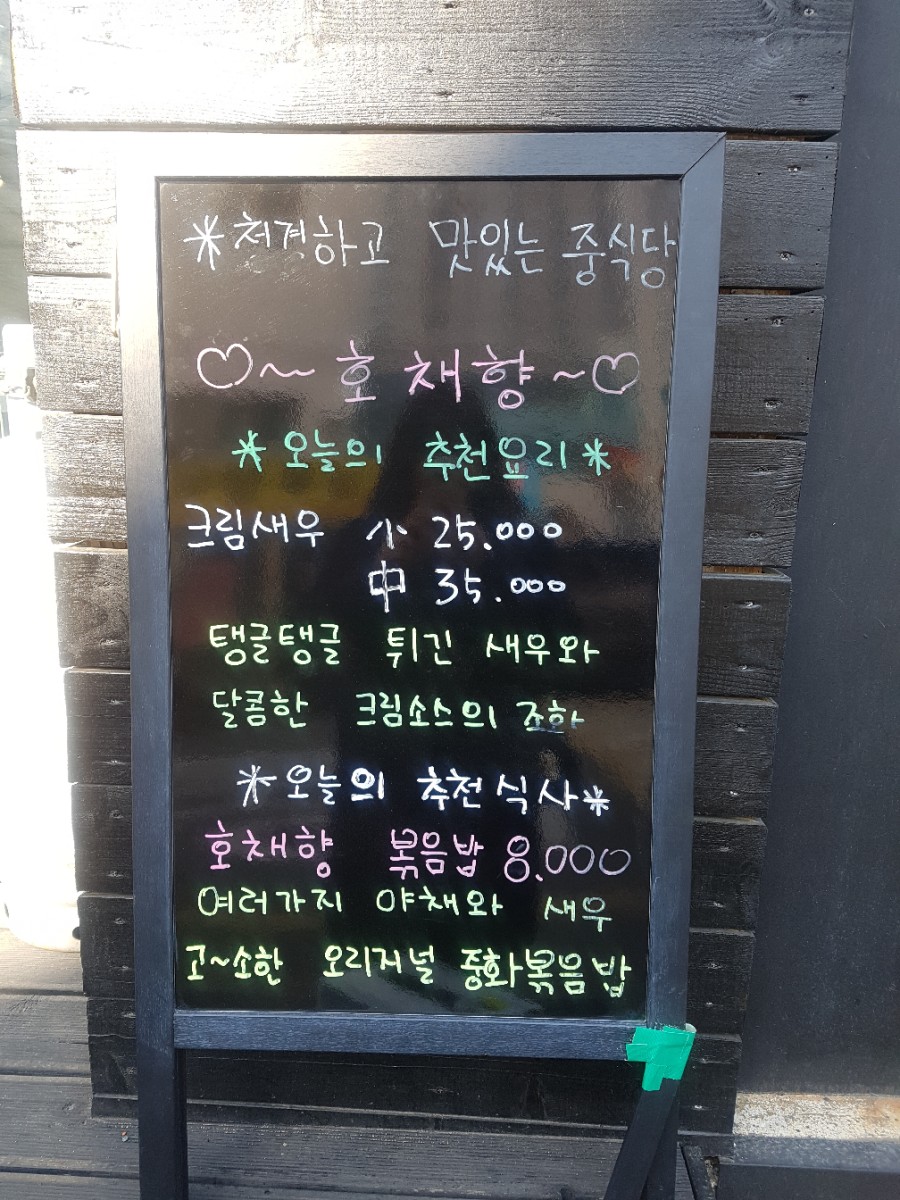 *청결하고 맛있는 중식당
♡~ 호채향 ~♡
*오늘의 추천요리*
크림새우 小 25.000
中 35.000
탱글탱글 튀긴 새우와
달콤한 크림소스의 조화
*오늘의 추천식사*
호채향 볶음밥 8.000
여러가지 야채와 새우
고~소한 오리지널 중화볶음밥